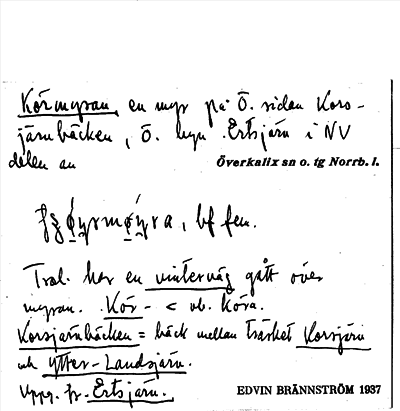 Körmyran, en myr på Ö. sidan Kors-
järnbäcken, Ö. byn Ertsjärn i NV
delen av Överkalix sn o. tg Norrb. l.
bf fen.
Trol. har en vinterväg gått över
myran. Kör- < vb. köra.
Korsjärnbäcken = bäck mellan träsket Korsjärn
och Ytter-Landsjärn.
Uppg. fr. Ertsjärn.
EDVIN BRÄNNSTRÖM 1937